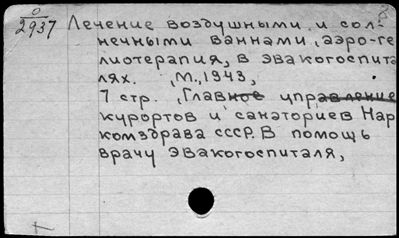 О
2937
Лечение воздушными и сол-
нечными ваннами, аэро-ге
лиотерапия, в эвакогоспита
лях. , М., 1943,
7 стр. , Главное управление
курортов и санаториев Нар
комздрава СССР. В помощь
врачу эвакогоспиталя,